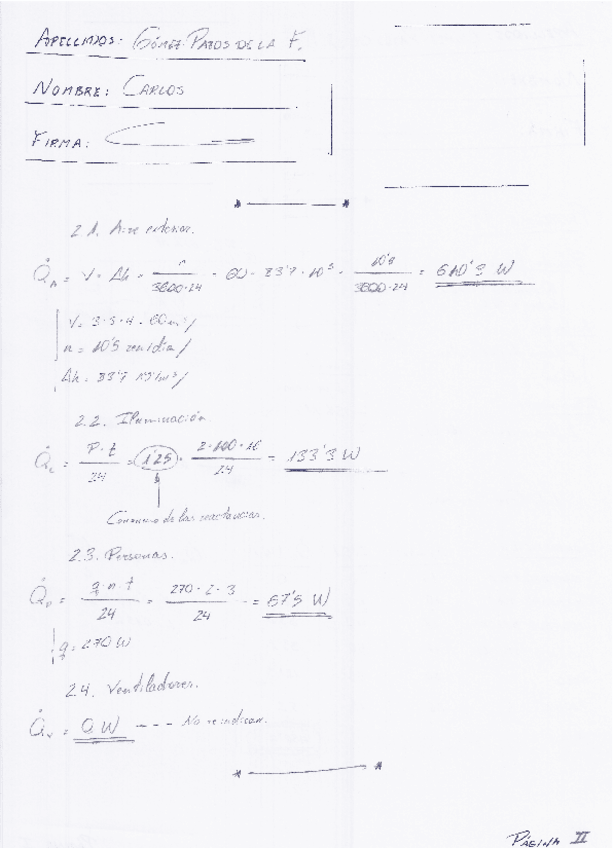 APELLIDOS: GÓMEZ-PATOS DE LA F.
NOMBRE: CARLOS
FIRMA:
2.1. Aire exterior.
Q̇a = V · Δh · n/(3600·24) = 60 · 33'7 · 10³ · 10'5/(3600·24) = W
n = 10'5 ren/dia
2.2. Iluminación
= P·t/24 = 1'25 · /24 = 133'3 W
Consumo de las reactancias.
2.3. Personas.
Q̇p = q·n·t/24 = 270·2·3/24 = 67'5 W
q = 270 W
2.4. Ventiladores.
Q̇v = 0 W --- No se indican.
PÁGINA II